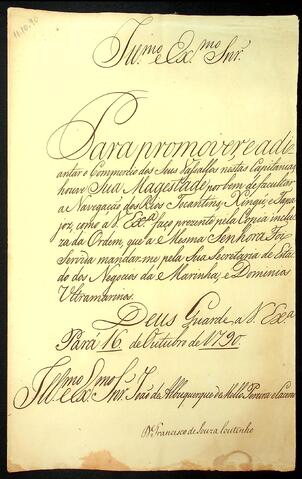 11.10.90
Ill.mo e Ex.mo Snr.
Para promover, e adi=
antar o Commercio dos Seus Vassallos nestas Capitanias,
houve Sua Magestade por bem de facultar
a Navegação dos Rios Tocantins, Xingú, e Tapa
joz, como a V. Ex.a faço prezente pela Copia inclu
za da Ordem, que a Mesma Senhora Foi
Servida mandar-me pela Sua Secretaria de Esta
do dos Negocios da Marinha, e Dominios
Ultramarinos.
Deus Guarde a V. Ex.a
Pará 16 de Outubro de 1790.
Ill.mo e Ex.mo Snr. João de Albuquerque de Mello Pereira e Caceres
D. Francisco de Souza Coutinho